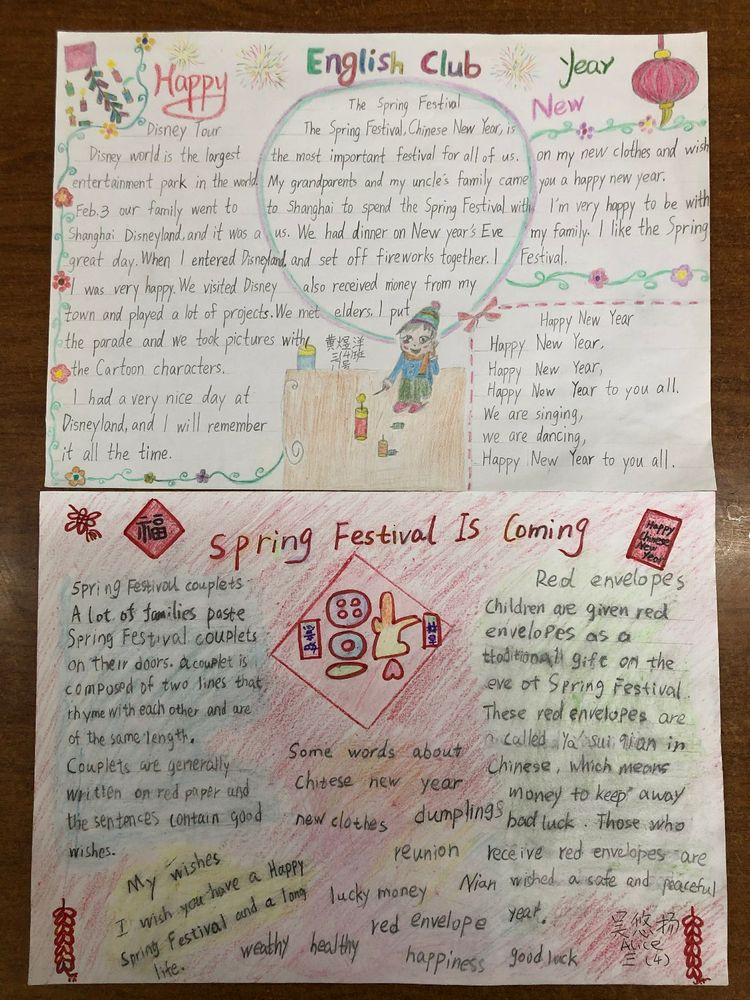 Happy
English Club
New
Year
Disney Tour
Disney world is the largest
entertainment park in the world.
Feb.3 our family went to
Shanghai Disneyland, and it was a
great day. When I entered Disneyland,
I was very happy. We visited Disney
town and played a lot of projects. We met
the parade and we took pictures with
the Cartoon characters.
I had a very nice day at
Disneyland, and I will remember
it all the time.
The Spring Festival
The Spring Festival, Chinese New Year, is
the most important festival for all of us.
My grandparents and my uncle's family came
to Shanghai to spend the Spring Festival with
us. We had dinner on New year's Eve
and set off fireworks together. I
also received money from my
elders. I put
on my new clothes and wish
you a happy new year.
I'm very happy to be with
my family. I like the Spring
Festival.
黄煜洋
三(4)班
1号
Happy New Year
Happy New Year,
Happy New Year,
Happy New Year to you all.
We are singing,
we are dancing,
Happy New Year to you all.
福
Spring Festival Is Coming
Happy
Chinese
New
Year
Spring Festival couplets
A lot of families paste
Spring Festival couplets
on their doors. a couplet is
composed of two lines that
rhyme with each other and are
of the same length.
Couplets are generally
written on red paper and
the sentences contain good
wishes.
My wishes
I wish you have a Happy
Spring Festival and a long
life.
Some words about
Chinese new year
new clothes
dumplings
reunion
lucky money
Nian
red envelope
weathy
healthy
happiness
good luck
Red envelopes
Children are given red
envelopes as a
traditionall gift on the
eve of Spring Festival.
These red envelopes are
called Ya' sui qian in
Chinese, which means
money to keep away
bad luck. Those who
receive red envelopes are
wished a safe and peaceful
year.
吴悠扬
Alice
三(4)